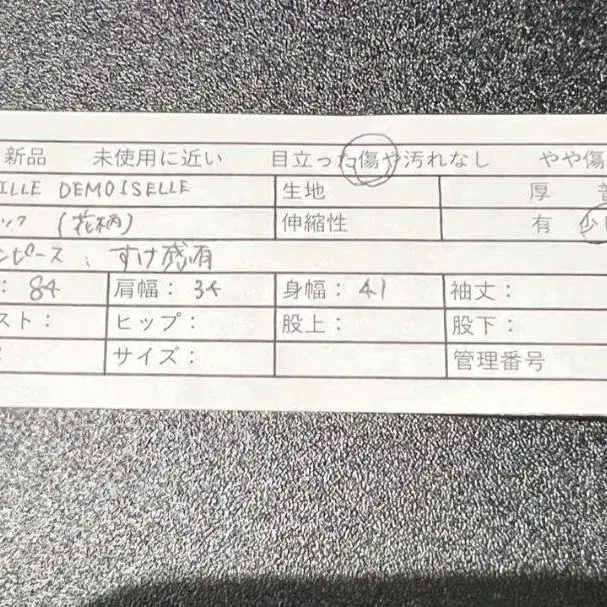 新品 未使用に近い 目立った傷や汚れなし やや傷
ILLE DEMOISELLE 生地 厚 普
ック (花柄) 伸縮性 有 少し
ンピース、すけ感有
: 84 肩幅: 34 身幅: 41 袖丈:
スト: ヒップ: 股上: 股下:
: サイズ: 管理番号